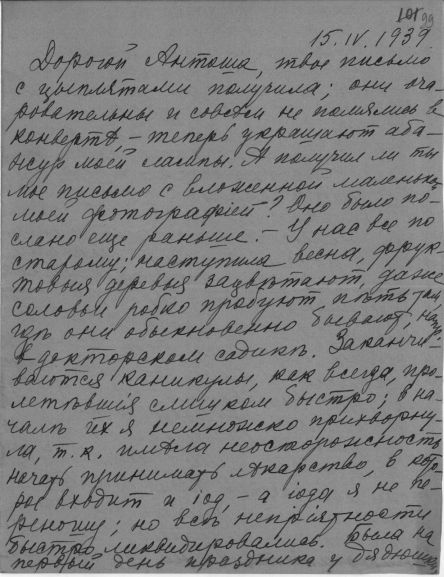 101 99
15.IV.1939.
Дорогой Антоша, твое письмо
с цыплятами получила; они оча-
ровательны и совсѣм не помялись в
конвертѣ, – теперь украшают аба-
жур моей лампы. А получил ли ты
мое письмо с вложенной маленькой
моей фотографіей? Оно было по-
слано еще раньше. – У нас все по
старому; наступила весна, фрук-
товыя деревья зацвѣтают, даже
соловьи робко пробуют пѣть там
гдѣ они обыкновенно бывают,
в докторском садикѣ. Заканчи-
ваются каникулы, как всегда, про-
летѣвшія слишком быстро; в на-
чалѣ их я немножко прихворну-
ла, т.к. имѣла неосторожность
начать принимать лѣкарство, в кото-
рое входит и іод, – а іода я не пе-
реношу; но всѣ непріятности
быстро ликвидировались. Была на
первый день праздника у дядюшки